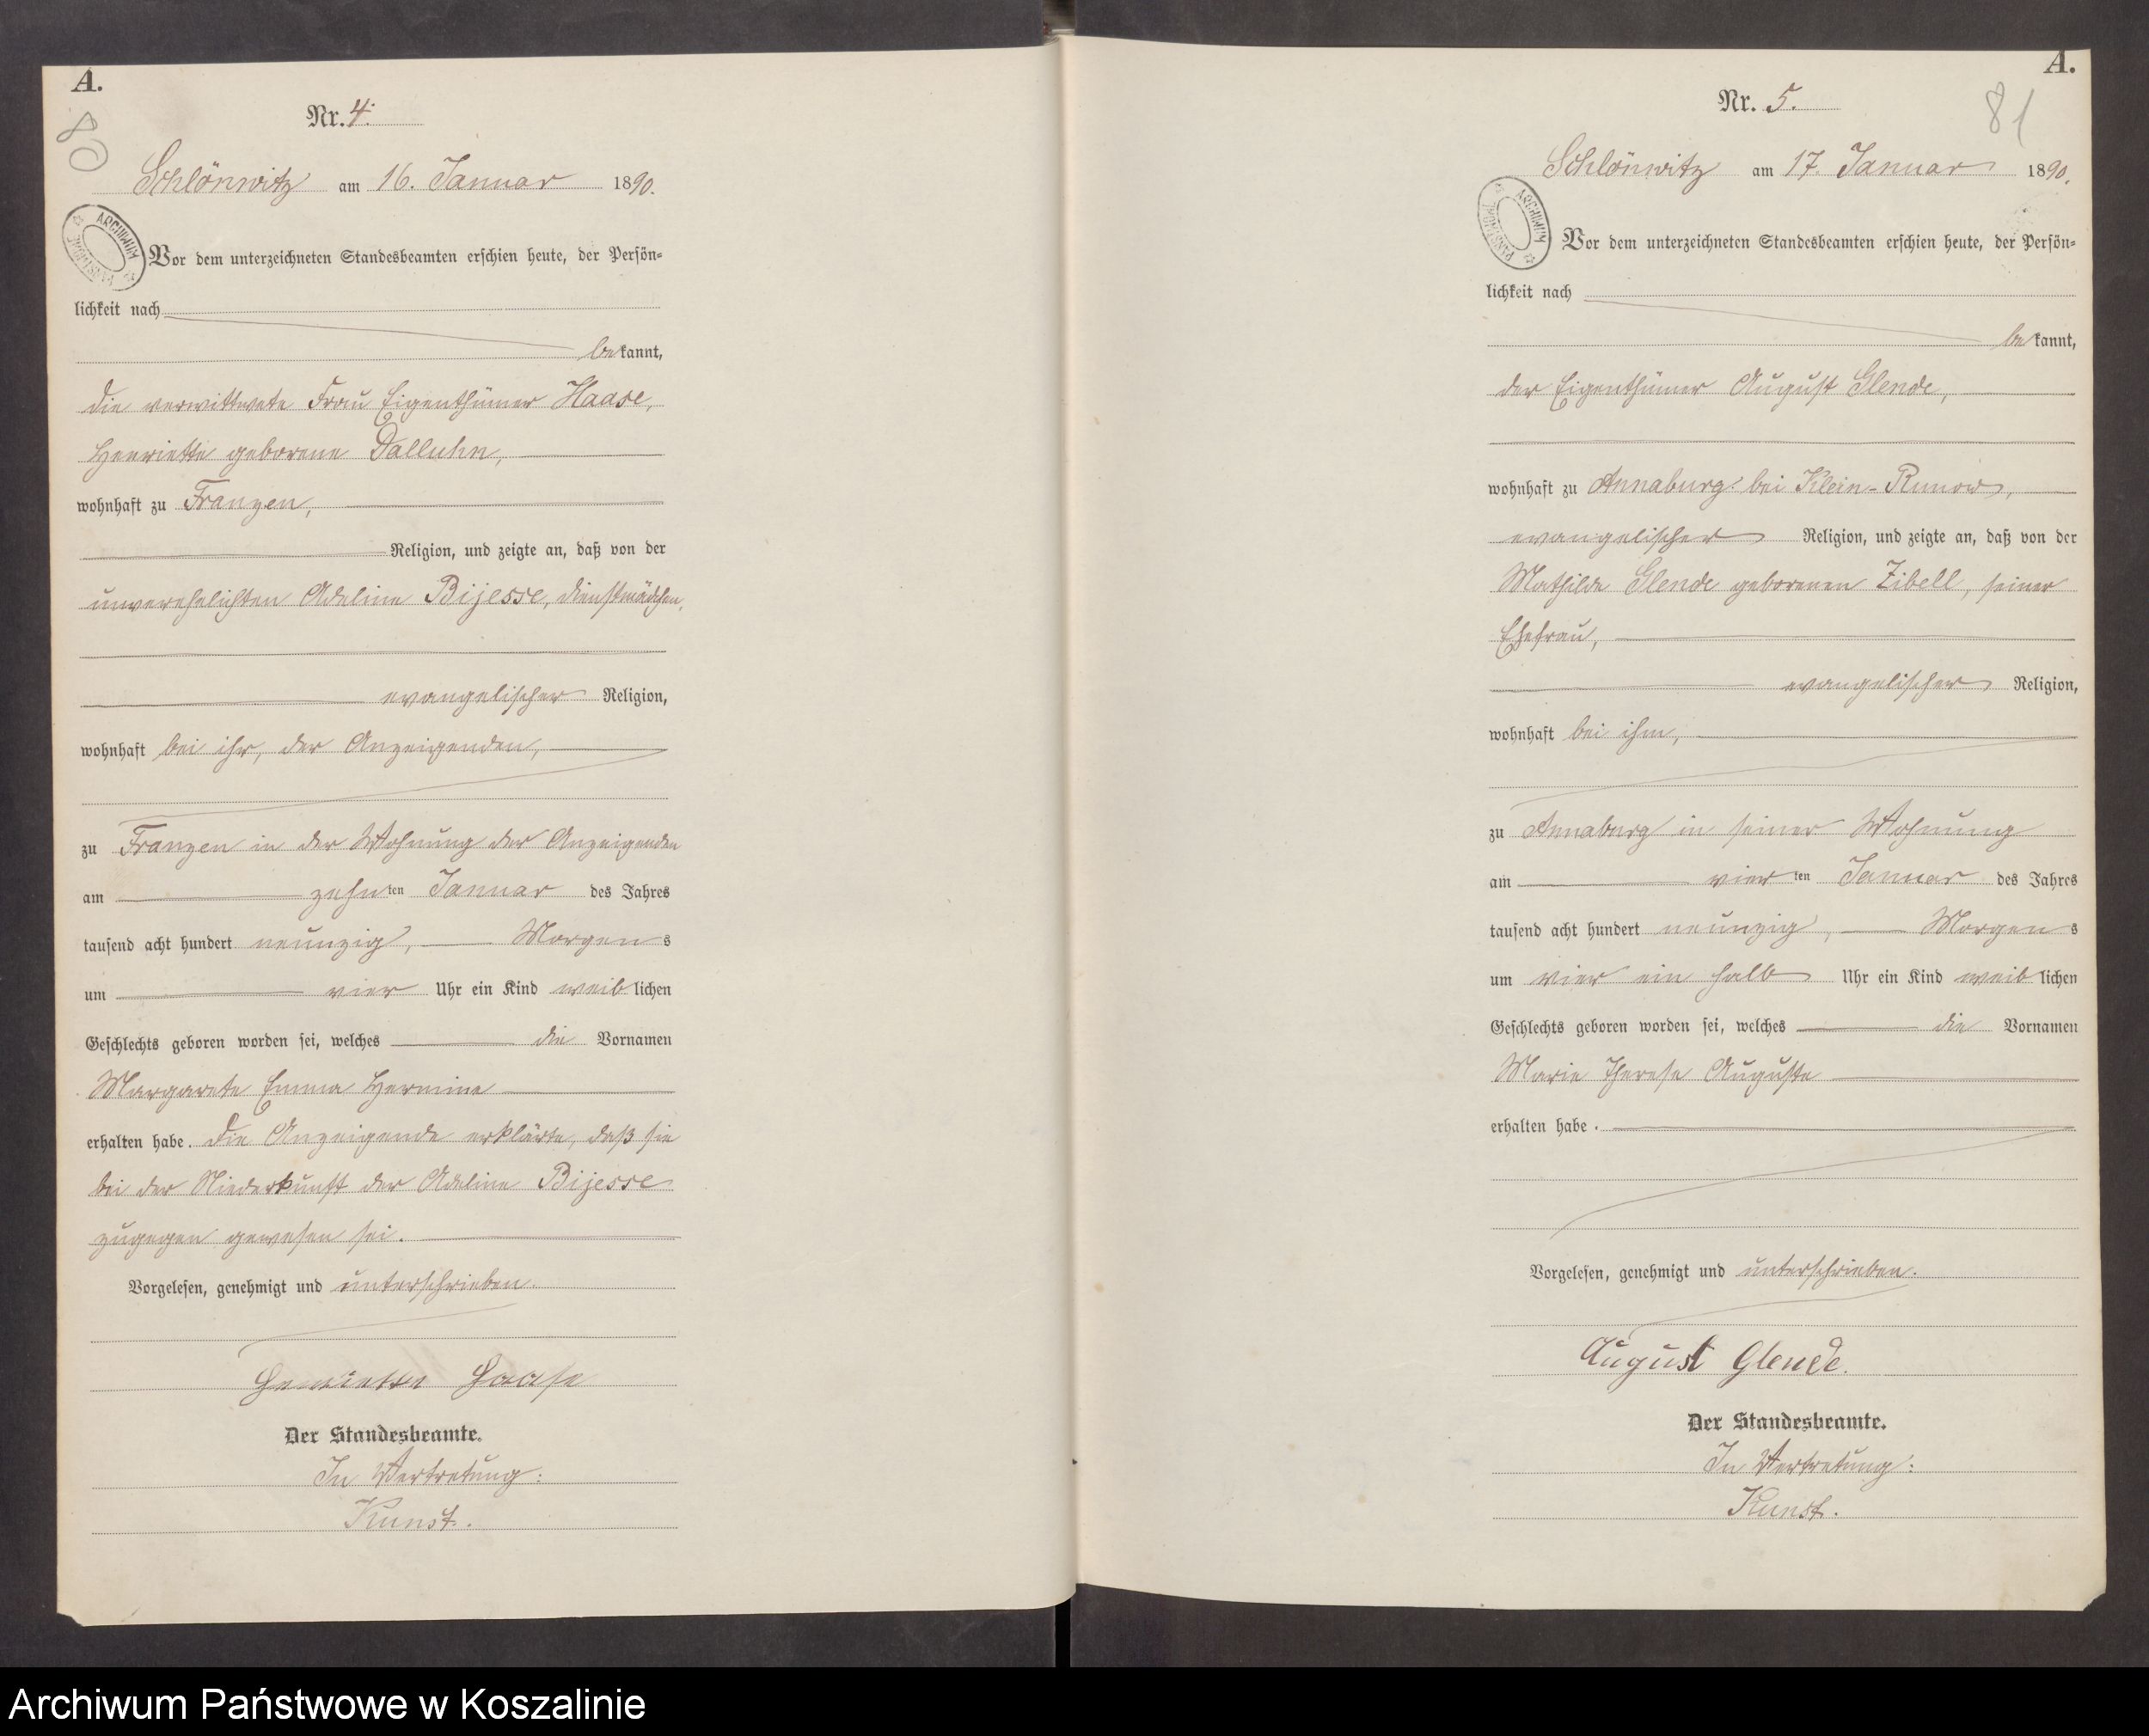 A.
80
Nr. 4.
Schlönwitz am 16. Januar 1890.
ARCHIWUM PAŃSTWOWE
Vor dem unterzeichneten Standesbeamten erschien heute, der Persön-
lichkeit nach
bekannt,
die verwittwete Frau Eigenthümer Haase,
Henriette geborene Dalluhn,
wohnhaft zu Franzen,
Religion, und zeigte an, daß von der
unverehelichten Adeline Bijesse, Dienstmädchen,
evangelischer Religion,
wohnhaft bei ihr, der Anzeigenden,
zu Franzen in der Wohnung der Anzeigenden
am zehnten Januar des Jahres
tausend acht hundert neunzig, Morgens
um vier Uhr ein Kind weiblichen
Geschlechts geboren worden sei, welches die Vornamen
Margarete Emma Hermine
erhalten habe. Die Anzeigende erklärte, daß sie
bei der Niederkunft der Adeline Bijesse
zugegen gewesen sei.
Vorgelesen, genehmigt und unterschrieben.
Henriette Haase
Der Standesbeamte.
In Vertretung:
Kunst.
A.
81
Nr. 5.
Schlönwitz am 17. Januar 1890.
ARCHIWUM PAŃSTWOWE
Vor dem unterzeichneten Standesbeamten erschien heute, der Persön-
lichkeit nach
bekannt,
der Eigenthümer August Glende,
wohnhaft zu Annaburg bei Klein-Runow,
evangelischer Religion, und zeigte an, daß von der
Mathilde Glende geborenen Zibell, seiner
Ehefrau,
evangelischer Religion,
wohnhaft bei ihm,
zu Annaburg in seiner Wohnung
am vierten Januar des Jahres
tausend acht hundert neunzig, Morgens
um vier ein halb Uhr ein Kind weiblichen
Geschlechts geboren worden sei, welches die Vornamen
Marie Therese Auguste
erhalten habe.
Vorgelesen, genehmigt und unterschrieben.
August Glende.
Der Standesbeamte.
In Vertretung:
Kunst.
Archiwum Państwowe w Koszalinie